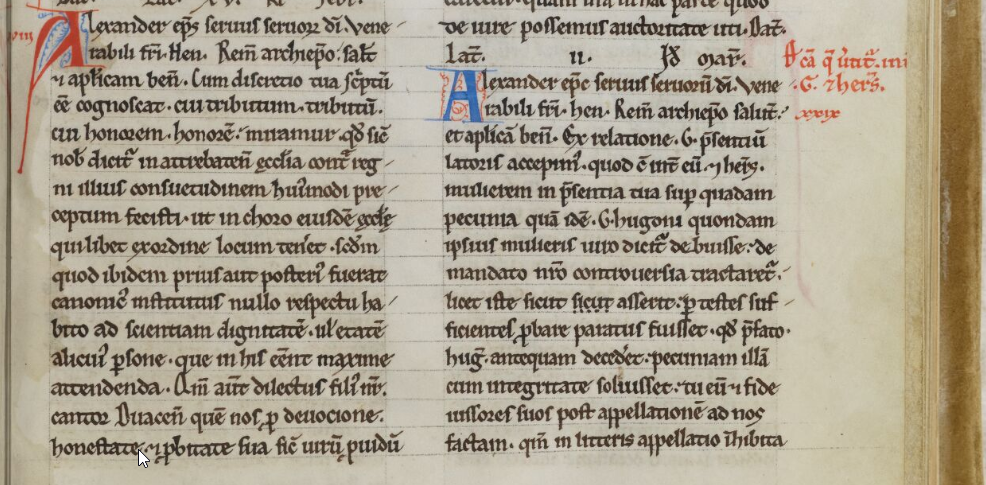 Alexander ep̅s seruus seruoꝝ di̅. Vene
rabili fr̅i. Hen. Rem̅ archiep̅o. salt̅
⁊ ap̅licam ben̅. Cum discretio tua sc̅ptu̅
ee̅ cognoscat. cui tributum. tributu̅.
cui honorem. honore̅. miramur. qd̅ sic̅
nob̅ dicit᷑ in attrebaten̅ ecc̅lia cont᷑ reg
ni illius consuetudinem hui᷒modi pre
ceptum fecisti. ut in choro eiusde̅ ecc̅le
quilibet ex ordine locum tener̅et. scd̅m
quod ibidem prius aut posteri᷒ fuerat
canonic᷒ institutus nullo respectu ha
bito ad scientiam dignitate̅. ul̅ etate̅
alicui᷒ ꝑsone. que in his ee̅nt maxime
attendenda. Qm̅ aut̅ dilectus fili᷒ nr̅.
cantor Duacen̅ que̅ nos ꝓ deuocione.
honestate. ⁊ ꝓbitate sua sic̅ uiru̅ ꝓuidu̅
de iure possemus auctoritate uti. Dat̅.
Lat̅. ii. Id̅ mar̅.
Alexander ep̅c seruus seruoru̅ di̅. Vene
rabili fr̅i. hen. Rem̅ archiep̅o salut̅.
et ap̅lica̅ ben̅. Ex relatione. G. p̅sentiu̅
latoris accepim᷒. quod c̅ int̅ eu̅. ⁊ hers̅.
mulierem in p̅sentia tua sup̱ quadam
pecunia qua̅ ide̅. G. hugoni quondam
ipsius mulieris uiro dicit᷑ debuisse. de
mandato nr̅o controuersia tractaret᷑.
licet iste sicut sicut asserit. ꝑ testes suf
ficientes ꝓbare paratus fuisset. qd̅ p̅fato.
hug̅. antequam decedet̅. pecuniam illa̅
cum integritate soluisset. tu eu̅ ⁊ fide
iussores suos post appellatione̅ ad nos
factam. qm̅ in litteris appellatio i̅hibita
viii
.G. ⁊ hers̅.
xxix